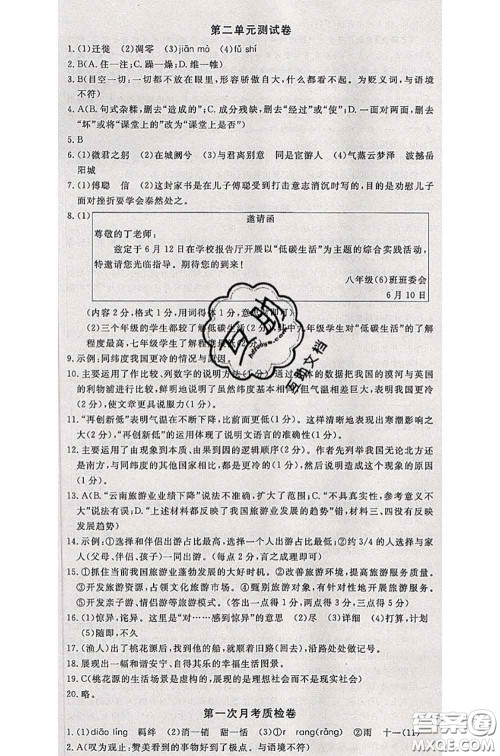 第二单元测试卷
1.(1)迁徙　(2)凋零　(3)jiān mò　(4)fǔ shí
2.B(A.住—注；C.躁—燥；D.维—帷)
3.B(目空一切:一切都不放在眼里,形容骄傲自大。为贬义词,与语境
不符)
4.A(B.句式杂糅,删去“造成的”；C.成分残缺,删去“经过”或“使”；D.一面对两面,删
去“坏”或将“课堂上的”改为“课堂上是否”)
5.B
6.(1)微君之躬　(2)在城阙兮　(3)与君离别意　同是宦游人　(4)气蒸云梦泽　波撼岳
阳城
7.(1)傅聪　信　(2)这封家书是在儿子傅聪受到打击意志消沉时写的,目的是劝慰儿子
面对挫折要学会泰然处之。
8.(1)
邀请函
尊敬的丁老师:
兹定于6月12日在学校报告厅开展以“低碳生活”为主题的综合实践活动,
特邀请您光临指导。期待您的到来!
八年级(6)班班委会
6月10日
(内容2分,格式1分,用词得体1分,
(2)三个年级的学生都较了解低碳生活
年级学生对“低碳生活”的了解
程度最高,七年级学生了解程度最低。
9.示例:同纬度我国更冷的情况与原因。
10.主要运用了作比较、列数字的说明方法
具体的数据把我国的漠河与英
国的利物浦进行比较,鲜明地说明了虽然纬度基本相
但气温相差巨大,表明我国更冷
(2分)。
11.“再创新低”表明气温在不断下降,而且一次比一次低。这样清晰地表现了寒潮影响之
大(1分)。“再创新低”的运用体现了说明文语言的准确性(1分)。
12.主要运用了由现象到本质(或由果到因)的逻辑顺序(2分)。作者先列举我国无论北方还
是南方,与同纬度的其他国家相比都更冷的现象(1分),然后分析造成这个现象的原因
(1分)。
13.A(B.“云南旅游业业绩下降”说法不准确,扩大了范围；C.“不具真实性,参考意义不
大”说法有误；D.“上述材料都反映了我国旅游业发展的趋势”错,材料一、四没有反映
发展趋势)
14.示例:①选择和伴侣出游占比最高,选择一个人出游占比最低；②约3/4的人选择与家
人(父母、伴侣、孩子)一同出游。(每点2分,意思对即可)
15.①抓住当前我国旅游业蓬勃发展的大好时机。②改善旅游环境,提高旅游服务质量。
③开发旅游商品,占领文化旅游市场。④甄别旅游人群,有针对性地开展旅游服务。
⑤开发亲子游、情侣游模式,扩大旅游规模。
16.(1)惊异,诧异。这里是“对……感到惊异”的意思　(2)尽　(3)详细　(4)打算,计划
(5)随即,不久
17.(渔人)出了桃花源的洞口后,找到了他的船,就沿着旧路回去,一路上处处做了标记。
18.展现出一幅和谐美好、自得其乐的幸福生活图景。
19.C(桃花源的生活图景在当时是不可能实现的)
20.略。
第一次月考质检卷
1.(1)diāo líng　羁绊　(2)消—销　甜—恬　(3)①r　rang(rǎng)　②雨　十一(11)
2.A(叹为观止:赞美看到的事物好到了极点。与语境相符)